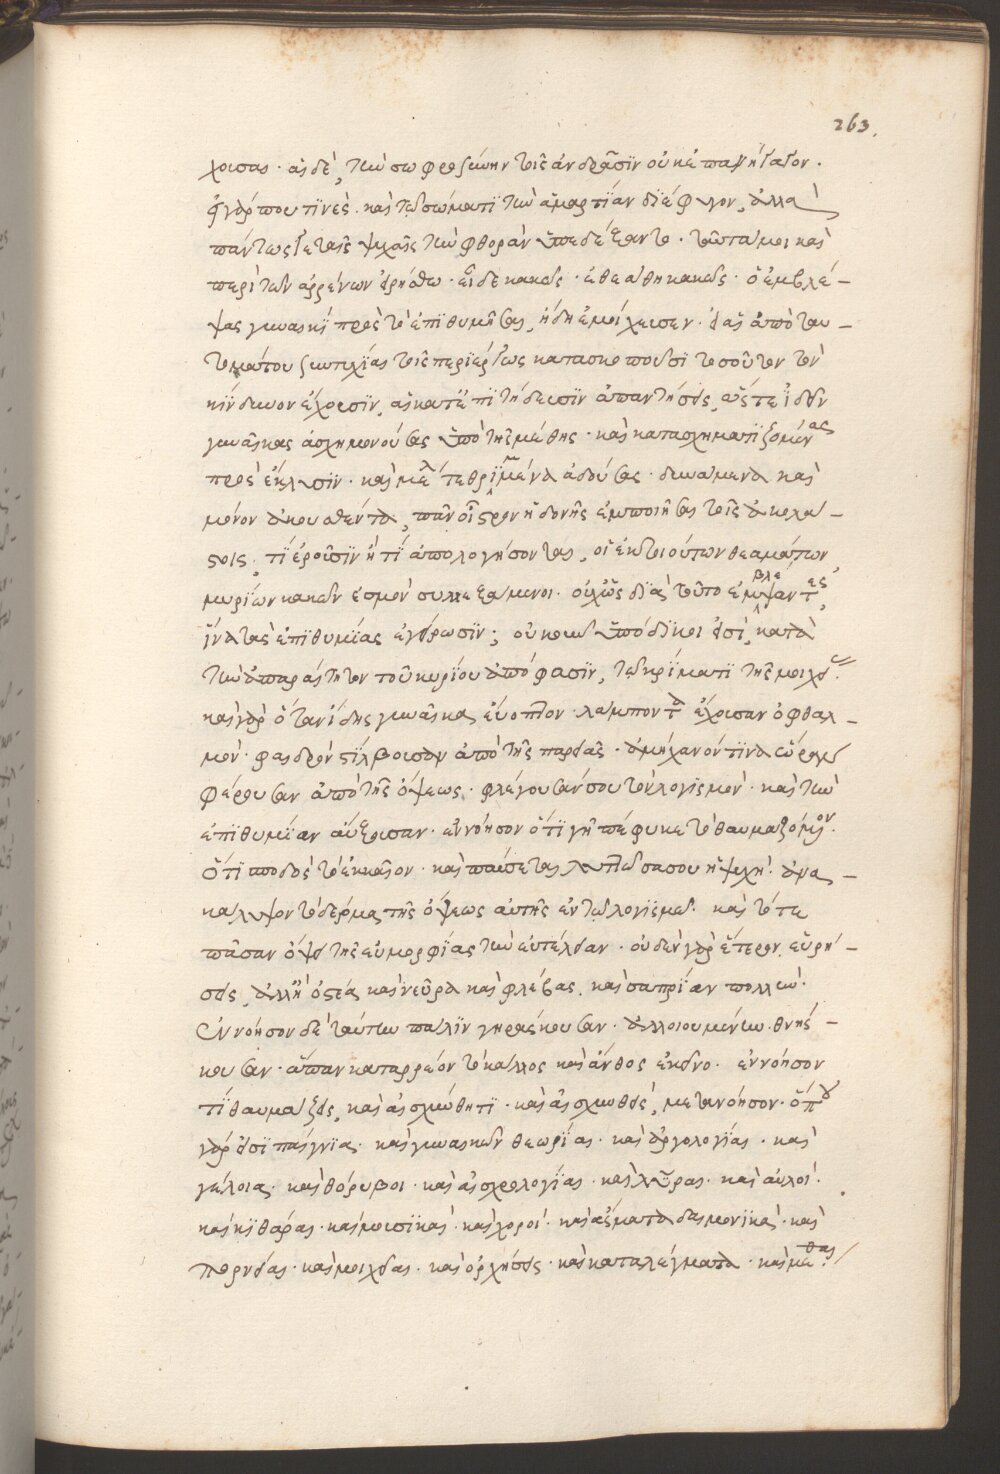 263.
χουσαι · αἱ δὲ, τὴν σωφροσύνην τοῖς ἀνδράσιν οὐκ ἐπαγήγαγον.
εἰ γάρ που τινὲς καὶ τῷ σώματι τὴν ἁμαρτίαν διέφυγον, ἀλλὰ
πάντως γε ταῖς ψυχαῖς τὴν φθορὰν ὑπεδέξαντο · ταῦτα μοι καὶ
περὶ τῶν ἀρρένων εἰρήσθω · εἶδε κακῶς · ἐθεάθη κακῶς · ὁ ἐμβλέ-
ψας γυναικὶ πρὸς τὸ ἐπιθυμῆσαι, ἤδη ἐμοίχευσεν · εἰ αἱ ἀπὸ ταυ-
τομάτου συντυχίαι τοῖς περιέργως κατασκοποῦσι τοσοῦτον τὸν
κίνδυνον ἔχουσιν, αἱ κατ' ἐπιτήδευσιν ἀπαντήσεις, ὥστε ἰδεῖν
γυναῖκας ἀσχημονούσας ὑπὸ τῆς μέθης · καὶ κατασχηματιζομένας
πρὸς ἔκλυσιν · καὶ μέλη τεθρυμμένα ἀδούσας · δυνάμενα καὶ
μόνον ἀκουσθέντα, πᾶν οἶστρον ἡδονῆς ἐμποιῆσαι τοῖς ἀκολά-
στοις, τί ἐροῦσιν ἢ τί ἀπολογήσονται, οἱ ἐκ τοιούτων θεαμάτων
μυρίων κακῶν ἐσμὸν συλλεξάμενοι · οὐχ ὡς διὰ τοῦτο ἐμβλέψαντες,
ἵνα τὰς ἐπιθυμίας ἐγείρωσιν; οὐκοῦν ὑπόδικοι εἰσὶ, κατὰ
τὴν ἀπαραίτητον τοῦ κυρίου ἀπόφασιν, τῷ κρίματι τῆς μοιχείας.
καὶ γὰρ ὅταν ἴδῃς γυναῖκα εὔοπτον · λάμποντα ἔχουσαν ὀφθαλ-
μόν · φαιδρὸν στίλβουσαν ἀπὸ τῆς παρειᾶς · ἀμήχανόν τινα εὐφημίαν
φέρουσαν ἀπὸ τῆς ὄψεως · φλέγουσάν σου τὸν λογισμόν · καὶ τὴν
ἐπιθυμίαν αὔξουσαν · ἐννόησον ὅτι γῆ πέφυκε τὸ θαυμαζόμενον.
ὅτι σποδὸς τὸ ἐκκαῖον · καὶ παύσεται λυττῶσά σου ἡ ψυχή · ἀνα-
κάλυψον τὸ δέρμα τῆς ὄψεως αὐτῆς ἐν τῷ λογισμῷ · καὶ τότε
πᾶσαν ὄψει τῆς εὐμορφίας τὴν εὐτέλειαν · οὐδὲν γὰρ ἕτερον εὑρή-
σεις, ἀλλ' ἢ ὀστέα καὶ νεῦρα καὶ φλέβας, καὶ σαπρίαν πολλήν.
ἐννόησον δὲ ταύτην πάλιν γηράσκουσαν · ἀλλοιουμένην · θνήσ-
κουσαν · ἅπαν καταρρέον τὸ κάλλος καὶ ἄνθος ἐκεῖνο · ἐννόησον
τί θαυμάζεις, καὶ αἰσχύνθητι · καὶ αἰσχυνθεὶς, μετανόησον · ὅπου
γάρ εἰσι παίγνια · καὶ γυναικῶν θεωρίαι · καὶ ἀργολογίαι · καὶ
γέλοια · καὶ θόρυβοι · καὶ αἰσχρολογίαι · καὶ λύραι · καὶ αὐλοί.
καὶ κιθάραι · καὶ μουσικαὶ · καὶ χοροί · καὶ ἄσματα δαιμονικὰ · καὶ
πορνεῖαι · καὶ μοιχεῖαι · καὶ ὀρχήσεις · καὶ καταλέγματα · καὶ μέθαι